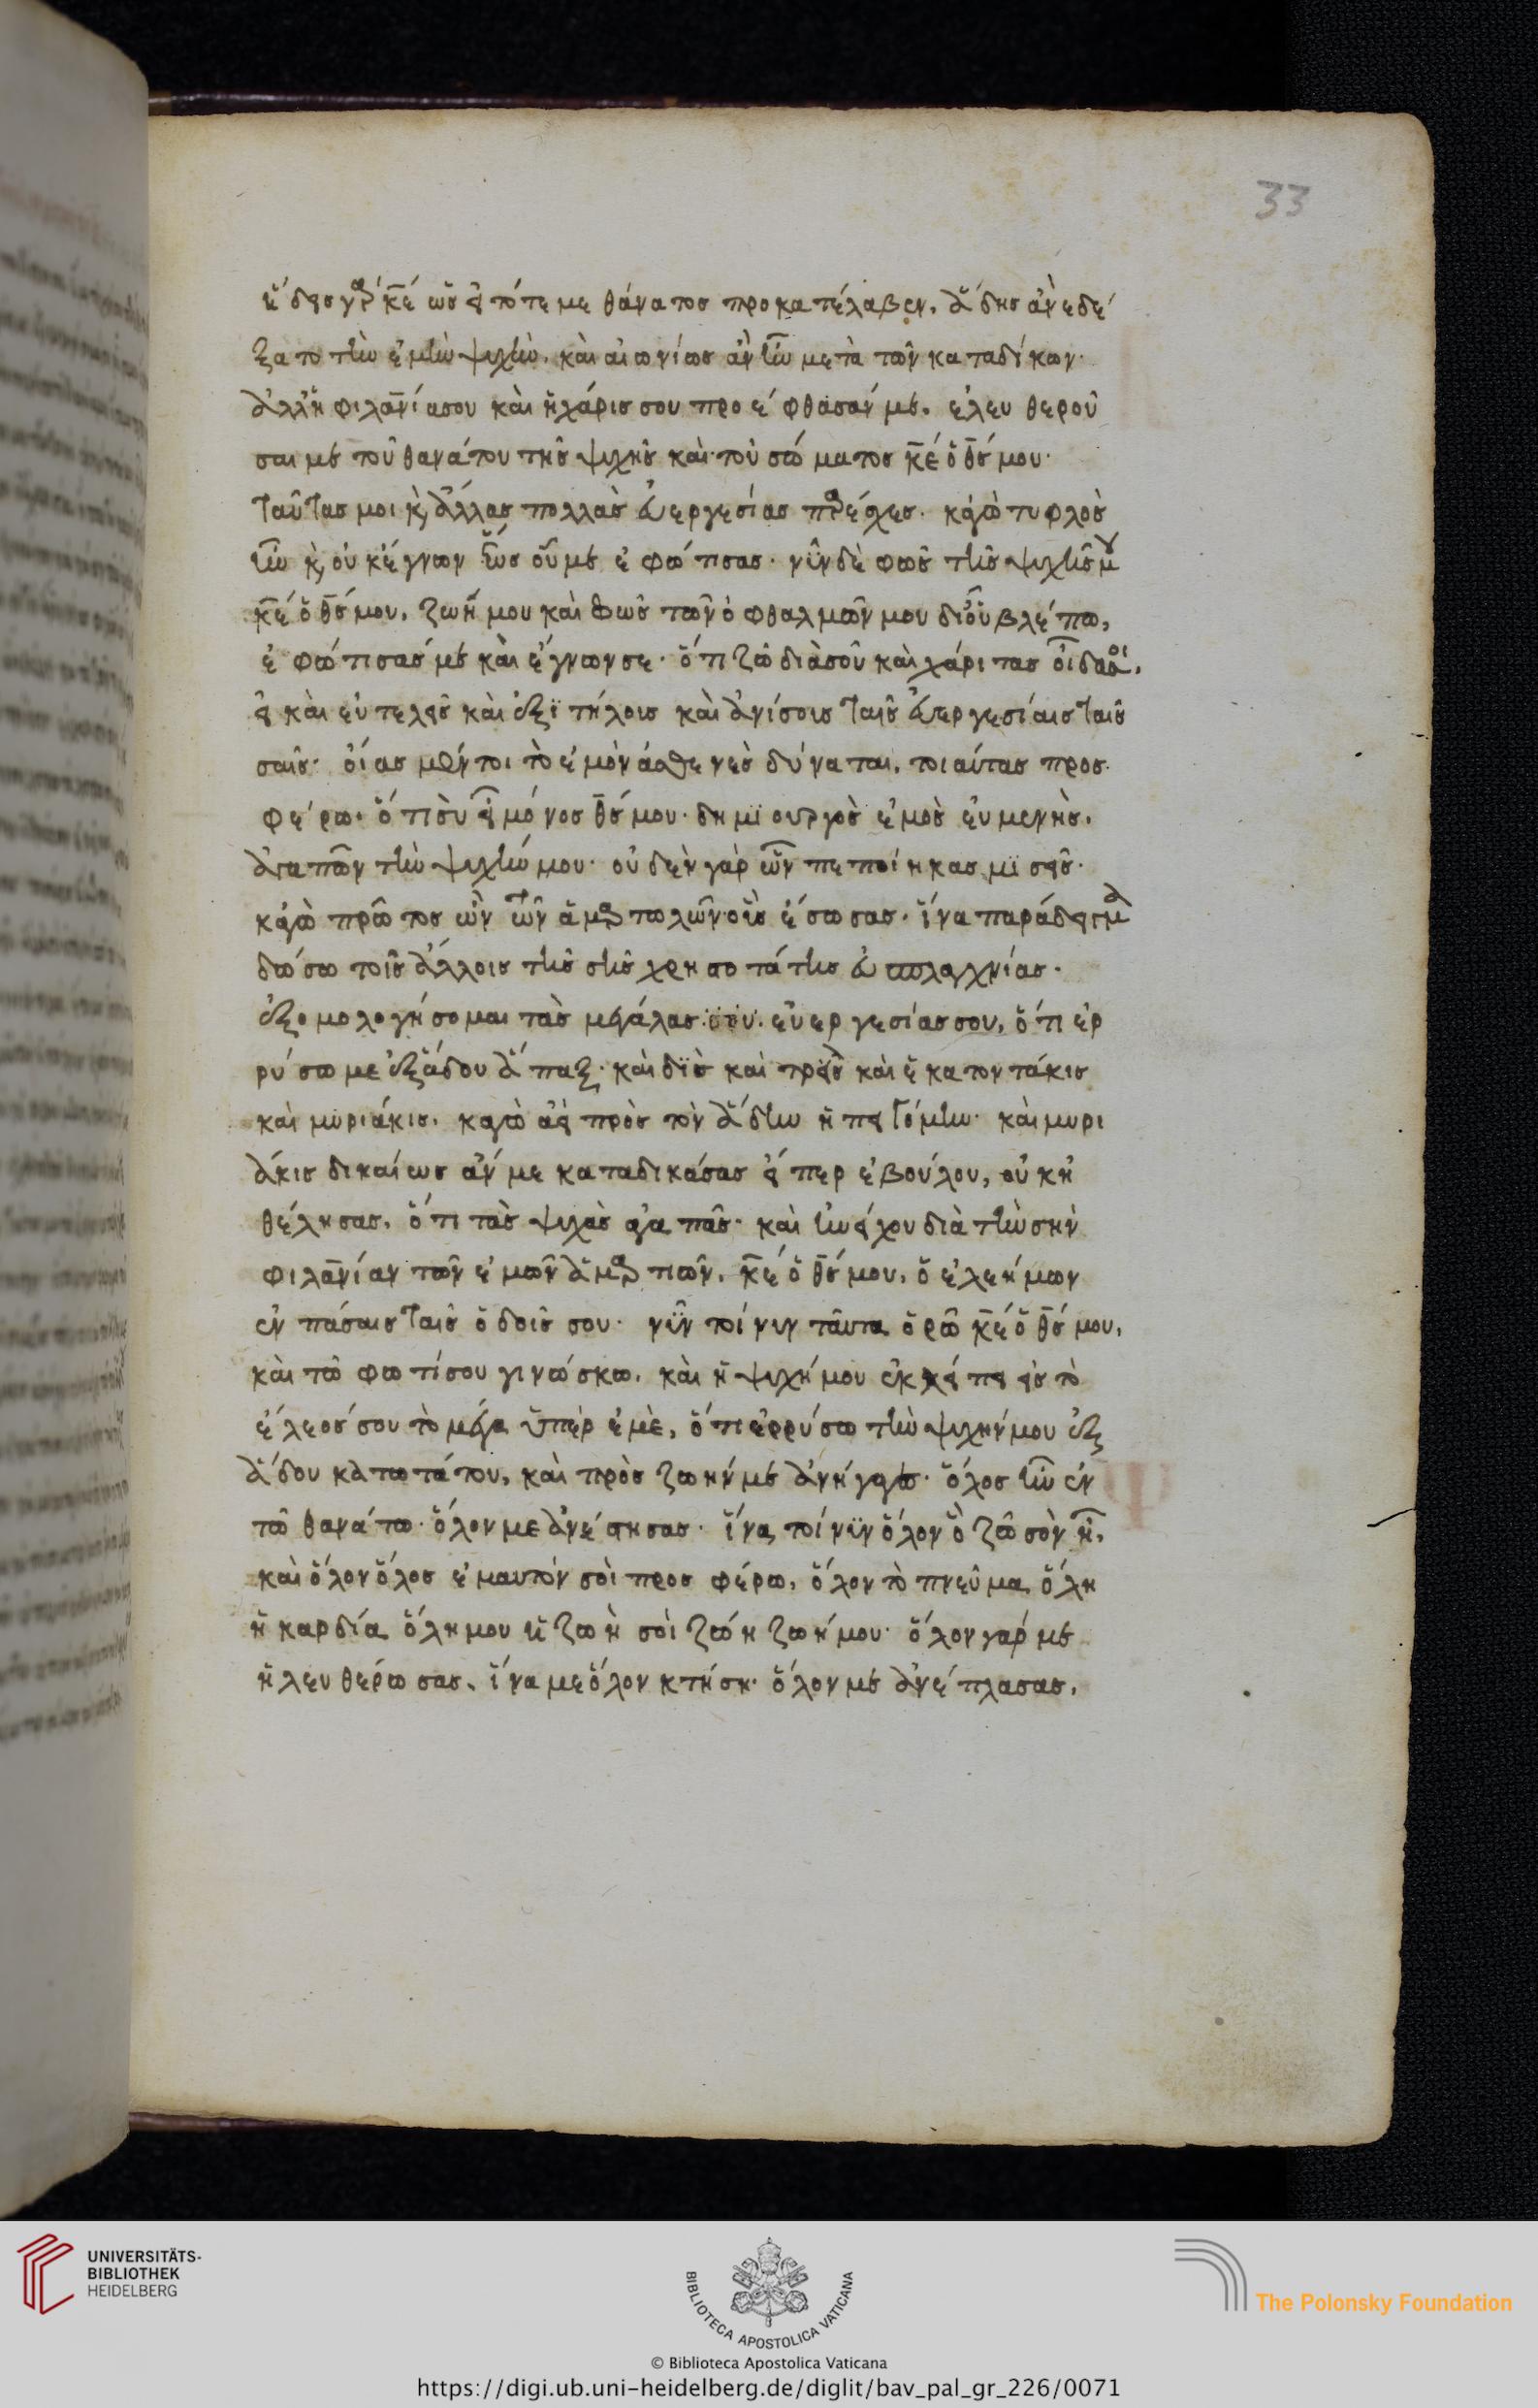 33
ᾔδεις γὰρ κε ὡς εἰ τότε με θάνατος προκατέλαβεν, ἅδης ἀνεδέ
ξατο τὴν ἐμὴν ψυχήν. καὶ αἰωνίως ἂν ἦν μετὰ τῶν καταδίκων·
ἀλλ' ἡ φιλανία σου καὶ ἡ χάρις σου προέφθασάν με. ἐλευθεροῦ
σαι με τοῦ θανάτου τῆς ψυχῆς καὶ τοῦ σώματος κε ὁ θς μου·
ταύτας μοι κ ἄλλας πολλὰς εὐεργεσίας παρέσχες. κἀγὼ τυφλὸς
ἦν κ οὐκ ἔγνων ἕως οὗ με ἐφώτισας. νῦν δὲ φῶς τῆς ψυχῆς μου
κε ὁ θς μου, ζωή μου καὶ φῶς τῶν ὀφθαλμῶν μου δι' οὗ βλέπω,
ἐφώτισάς με καὶ ἔγνων σε. ὅτι ζῶ διὰ σοῦ καὶ χάριτας οἶδά σοι,
εἰ καὶ εὐτελεῖς καὶ ἐξιτήλοις καὶ ἀνίσοις ταῖς εὐεργεσίαις ταῖς
σαῖς· οἵας μέντοι τὸ ἐμὸν ἀσθενὲς δύναται, τοιαύτας προσ
φέρω. ὅτι σὺ εἶ μόνος θς μου. δημιουργὸς ἐμὸς εὐμενὴς.
ἀγαπῶν τὴν ψυχήν μου· οὐδὲν γὰρ ὧν πεποίηκας μισεῖς·
κἀγὼ πρῶτος ὢν τῶν ἁμαρτωλῶν οὓς ἔσωσας. ἵνα παράδειγμα
δώσω τοῖς ἄλλοις τῆς σῆς χρηστότητος εὐσπλαγχνίας.
ἐξομολογήσομαι τὰς μεγάλας σου εὐεργεσίας σου, ὅτι ἐρ
ρύσω με ἐξ ἅδου ἅπαξ. καὶ δὶς καὶ τρεῖς καὶ ἑκατοντάκις
καὶ μυριάκις. κἀγὼ ἀεὶ πρὸς τὸν ἅδην ἠπειγόμην. καὶ μυρι
άκις δικαίως ἄν με καταδικάσας εἴπερ ἐβούλου, οὐκ ἠ
θέλησας, ὅτι τὰς ψυχὰς ἀγαπᾶς. καὶ ἠνείχου διὰ τὴν σὴν
φιλανίαν τῶν ἐμῶν ἁμαρτιῶν. κε ὁ θς μου, ὁ ἐλεήμων
ἐν πάσαις ταῖς ὁδοῖς σου. νῦν τοίνυν ταῦτα ὁρῶ κε ὁ θς μου,
καὶ τῷ φωτί σου γινώσκω. καὶ ἡ ψυχή μου ἐκλείπει εἰς τὸ
ἔλεός σου τὸ μέγα ὑπὲρ ἐμὲ, ὅτι ἐρρύσω τὴν ψυχήν μου ἐξ
ἅδου κατωτάτου, καὶ πρὸς ζωήν με ἀνήγαγες. ὅλος ἦν ἐν
τῷ θανάτῳ. ὅλον με ἀνέστησας. ἵνα τοίνυν ὅλον ὃ ζῶ σὸν ᾖ.
καὶ ὅλον ὅλος ἐμαυτόν σοι προσφέρω, ὅλον τὸ πνεῦμα ὅλη
ἡ καρδία ὅλη μου ἡ ζωὴ σοὶ ζώῃ ζωή μου. ὅλον γάρ με
ἠλευθέρωσας. ἵνα με ὅλον κτήσῃ. ὅλον με ἀνέπλασας,
UNIVERSITÄTS-
BIBLIOTHEK
HEIDELBERG
BIBLIOTECA APOSTOLICA VATICANA
The Polonsky Foundation
© Biblioteca Apostolica Vaticana
https://digi.ub.uni-heidelberg.de/diglit/bav_pal_gr_226/0071